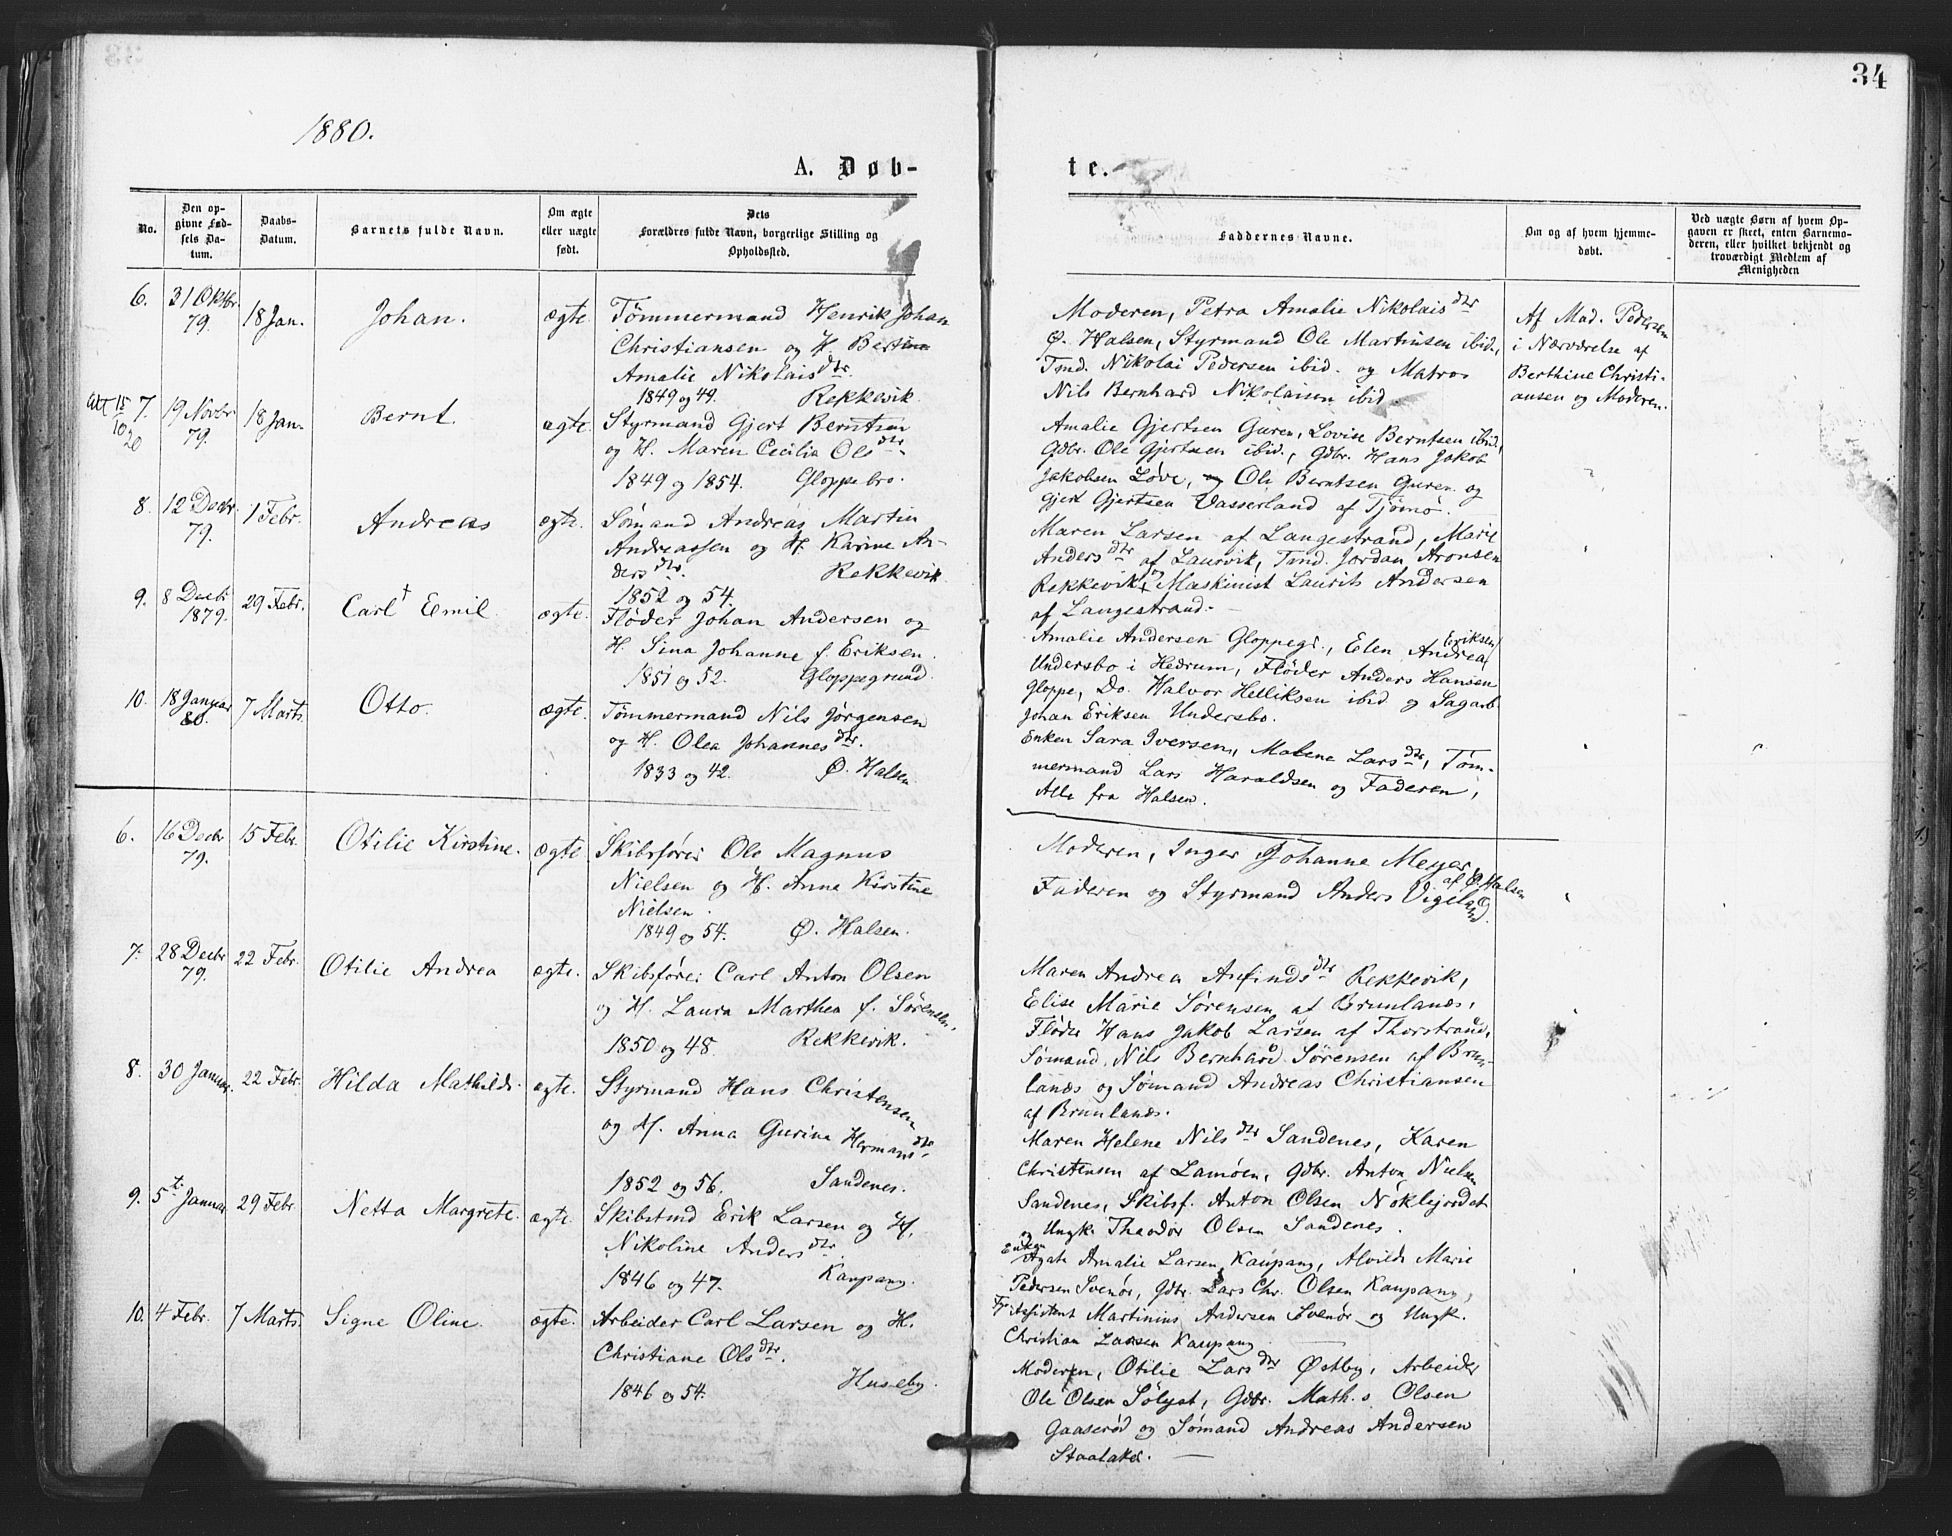 34
1880.
A. Døb-
te.
No.
Den op-
givne Fød-
sels Da-
tum.
Daabs-
Datum.
Barnets fulde Navn.
Om ægte
eller uægte
født.
Dets
Forældres fulde Navn, borgerlige Stilling og
Opholdssted.
Faddernes Navne.
Om og af hvem hjemme-
døbt.
Ved uægte Børn af hvem Op-
gaven er skeet, enten Barnemo-
deren, eller hvilket bekjendt og
troværdigt Medlem af
Menigheden
6. 31 Oktbr. 79. 18 Jan. Johan. ægte.
Tømmermand Henrik Johan
Christiansen og H. Bertine
Amalie Nikolaisdtr.
1849 og 49. Rekkevik
Moderen, Petra Amalie Nikolaisdtr
Ø. Halsen, Styrmand Ole Martinsen ibid.,
Tmd. Nikolai Pedersen ibid. og Matros
Nils Bernhard Nikolaisen ibid.
Af Mad. Pedersen
i Nærværelse af
Berthine Christi-
ansen og Moderen.
Att 15/10 20
7. 19 Novbr 79. 18 Jan. Bernt. ægte.
Styrmand Gjert Berntsen
og H. Maren Cecilia Olsdtr.
1849 og 1854. Gloppebro.
Amalie Gjertsen Guren, Lovise Berntsen ibid.,
Gdbr. Ole Gjertsen ibid., Gdbr. Hans Jakob
Jakobsen Løve, og Ole Berntsen Guren og
Gjert Gjertsen Vasserland af Tjømø.
8. 12 Decbr 79. 1 Febr. Andreas ægte.
Sømand Andreas Martin
Andreassen og H. Karine An-
dersdtr. Rekkevik
1852 og 54.
Maren Larsen af Langestrand, Marie
Andersdtr af Laurvik, Tmd. Jordan Aronsen
Rekkevik, Maskinist Laurits Andersen
af Langestrand.
9. 8 Decbr 1879. 29 Febr. Carl † Emil. ægte.
Fløder Johan Andersen og
H. Sina Johanne f. Eriksen.
1851 og 52. Gloppegrund.
Amalie Andersen Gloppegr., Elen Andrea Eriksen
Undersbo i Hedrum, Fløder Anders Hansen
Gloppe, Do. Halvor Helliksen ibid og Sagarb.
Johan Eriksen Undersbo.
10. 18 Januar 80. 7 Marts. Otto. ægte.
Tømmermand Nils Jørgensen
og H. Olea Johannesdtr.
1833 og 42. Ø. Halsen
Enken Sara Iversen, Malene Larsdtr, Tøm-
mermand Lars Haraldsen og Faderen,
Alle fra Halsen.
6. 16 Decbr 79. 15 Febr. Otilie Kirstine. ægte
Skibsfører Ole Magnus
Nielsen og H. Anne Kirstine
Nielsen.
1849 og 54. Ø. Halsen.
Moderen, Inger Johanne Meyer af Ø. Halsen
Faderen og Styrmand Anders Vigeland.
7. 28 Decbr 79. 22 Febr. Otilie Andrea ægte.
Skibsfører Carl Anton Olsen
og H. Laura Marthea f. Sørensen,
1850 og 48. Rekkevik.
Maren Andrea Arfindsdtr Rekkevik,
Elise Marie Sørensen af Brunlanæs,
Fløder Hans Jakob Larsen af Thorstrand,
Sømand Nils Bernhard Sørensen af Brun-
lanæs og Sømand Andreas Christiansen
af Brunlanæs.
8. 30 Januar. 22 Febr. Hilda Mathilde. ægte.
Styrmand Hans Christensen
og H. Anna Gurine Hermansdtr
1852 og 56. Sandenes.
Maren Helene Nilsdtr Sandenes, Karen
Christensen af Lamøen, Gdbr. Anton Nielsen
Sandenes, Skibsf. Anton Olsen Nøklejordet
og Ungk. Theodor Olsen Sandenes.
9. 5te Januar 29 Febr. Netta Margrete. ægte.
Skibstmd Erik Larsen og H.
Nikoline Andersdtr.
1846 og 47. Kaupang.
Enken Agate Amalie Larsen Kaupang, Alvilde Marie
Pedersen Svenør, Gdbr. Lars Chr. Olsen Kaupang,
Fyrassistent Martinius Andersen Svenør og Ungk.
Christian Larsen Kaupang
10. 4 Febr. 7 Marts. Signe Oline. ægte.
Arbeider Carl Larsen og H.
Christiane Olsdtr.
1846 og 54. Huseby.
Moderen, Otilie Larsdtr Østby, Arbeider
Ole Olsen Sølyst, Gdbr. Maths Olsen
Gaaserød og Sømand Andreas Andersen
Staalaker.